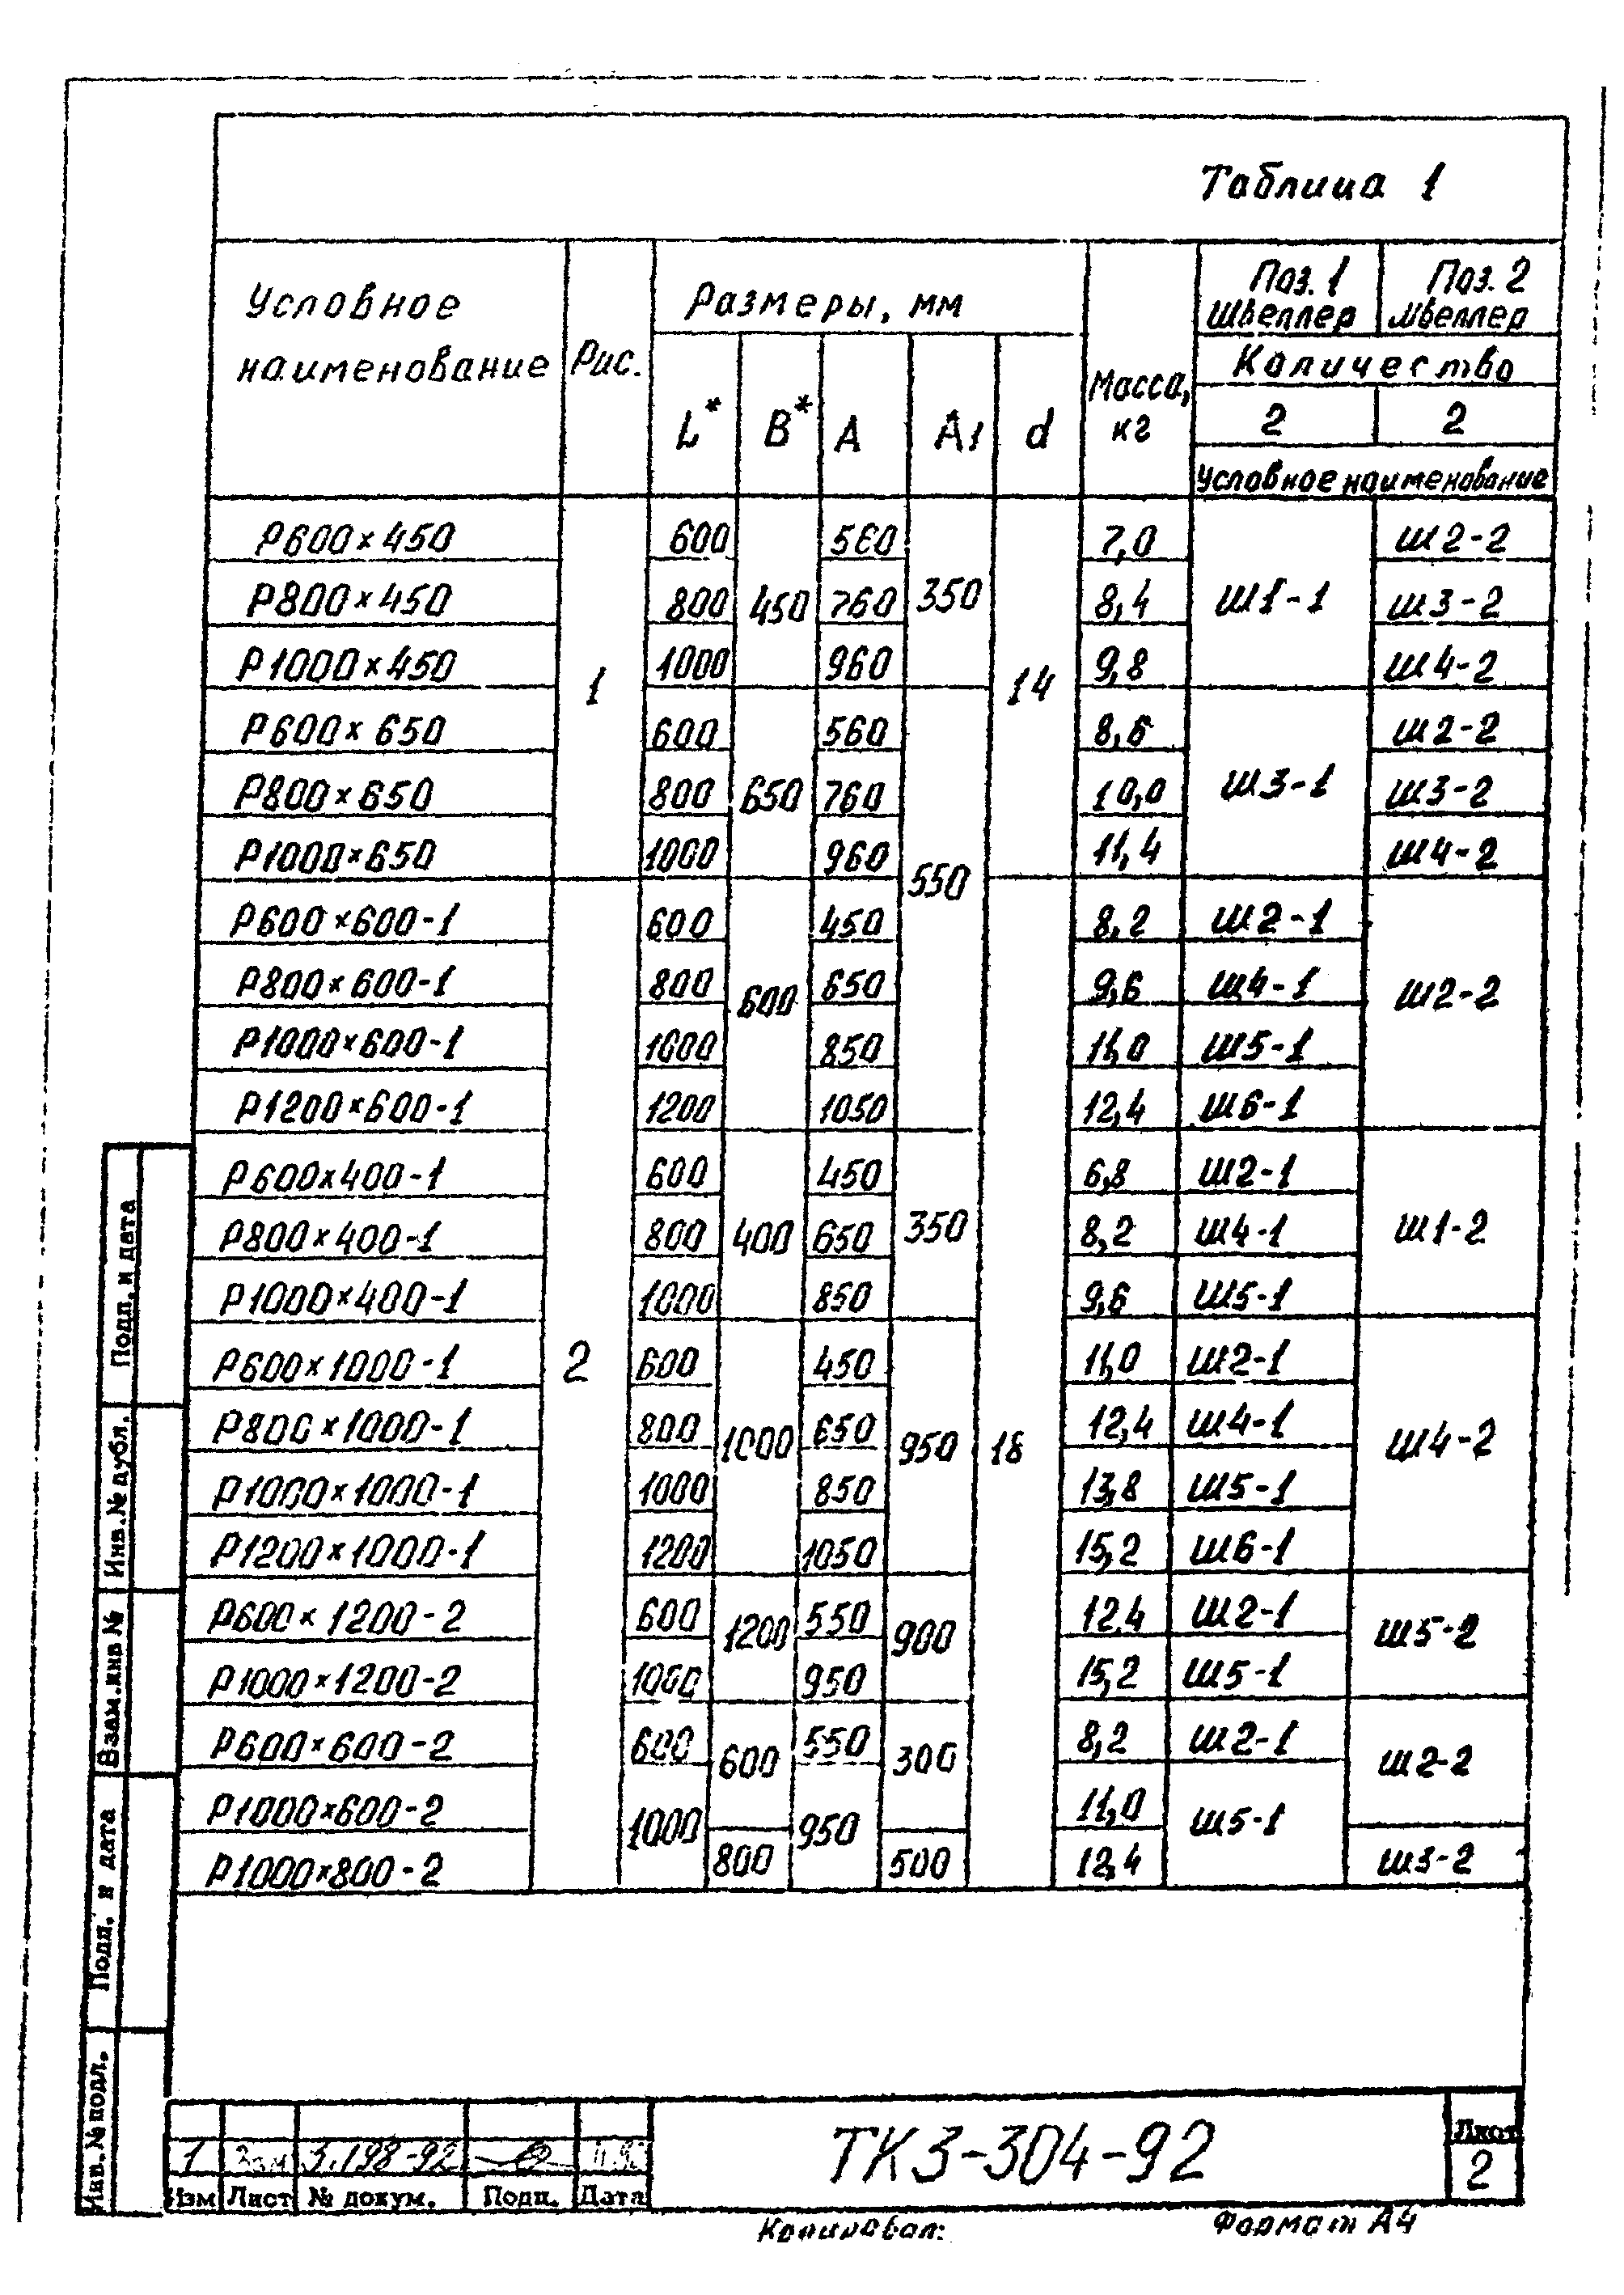 Таблица 1
Условное наименование Рис. Размеры, мм Масса, кг Поз. 1 швеллер Поз. 2 швеллер
Количество
L* B* A A1 d 2 2
Условное наименование
Р600×450 600 560 7,0 Ш2-2
Р800×450 800 450 760 350 8,4 Ш1-1 Ш3-2
Р1000×450 1000 960 9,8 Ш4-2
1 14
Р600×650 600 560 8,6 Ш2-2
Р800×650 800 650 760 10,0 Ш3-1 Ш3-2
Р1000×650 1000 960 11,4 Ш4-2
550
Р600×600-1 600 450 8,2 Ш2-1
Р800×600-1 800 600 650 9,6 Ш4-1 Ш2-2
Р1000×600-1 1000 850 11,0 Ш5-1
Р1200×600-1 1200 1050 12,4 Ш6-1
Р600×400-1 600 450 6,8 Ш2-1
Р800×400-1 800 400 650 350 8,2 Ш4-1 Ш1-2
Р1000×400-1 1000 850 9,6 Ш5-1
Р600×1000-1 2 600 450 11,0 Ш2-1
Р800×1000-1 800 1000 650 950 18 12,4 Ш4-1 Ш4-2
Р1000×1000-1 1000 850 13,8 Ш5-1
Р1200×1000-1 1200 1050 15,2 Ш6-1
Р600×1200-2 600 1200 550 900 12,4 Ш2-1 Ш5-2
Р1000×1200-2 1000 950 15,2 Ш5-1
Р600×600-2 600 600 550 300 8,2 Ш2-1 Ш2-2
Р1000×600-2 1000 950 11,0 Ш5-1
Р1000×800-2 800 500 12,4 Ш3-2
Подп. и дата
Инв. № дубл.
Взам. инв №
Подп. и дата
Инв. № подл.
1 Зам 3.198-92
Изм Лист № докум. Подп. Дата
ТК3-304-92
Лист
2
Копировал:
Формат А4